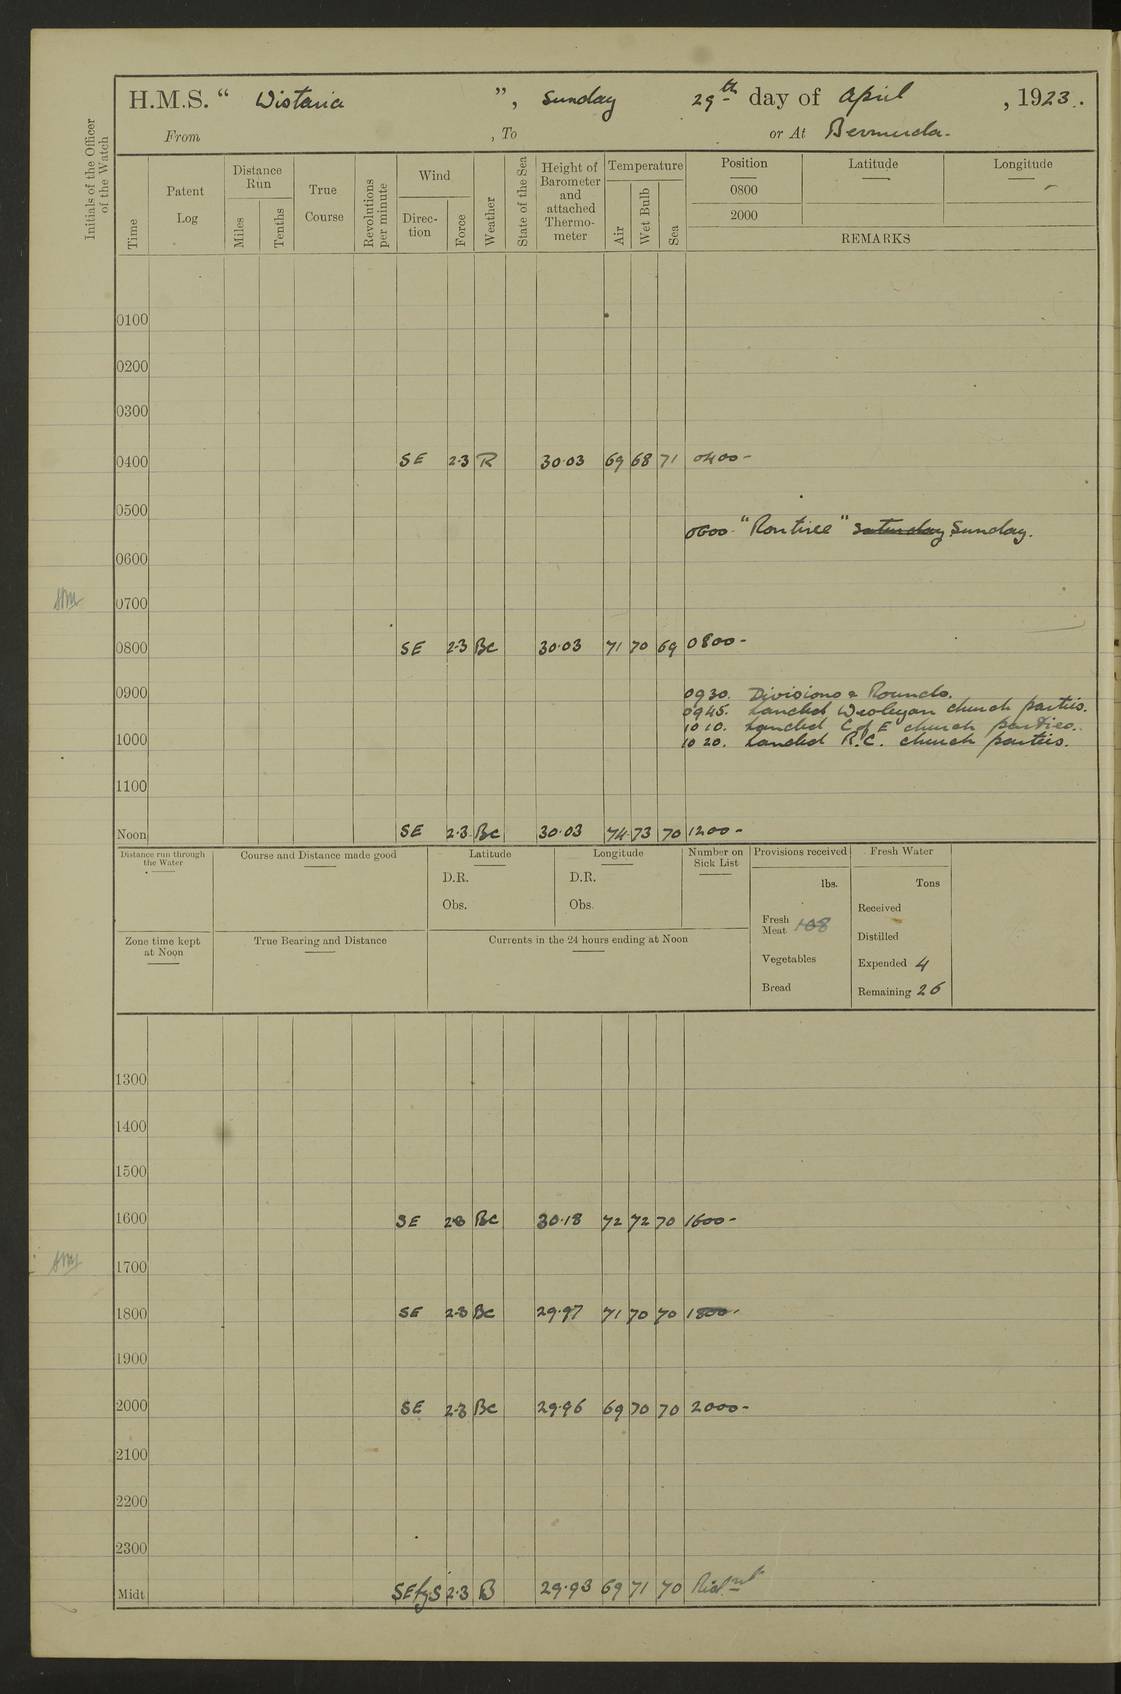 H.M.S. “ Wistaria ”, Sunday 29th day of April, 1923.
From , To or At Bermuda.
Initials of the Officer of the Watch
Time
Patent Log
Distance Run
Miles
Tenths
True Course
Revolutions per minute
Wind
Direc-tion
Force
Weather
State of the Sea
Height of Barometer and attached Thermo-meter
Temperature
Air
Wet Bulb
Sea
Position Latitude Longitude
0800
2000
REMARKS
0100
0200
0300
0400 SE 2·3 R 30·03 69 68 71 0400-
0500
0600 "Routine" Saturday Sunday.
0600
0700
0800 SE 2·3 Bc 30·03 71 70 69 0800-
0900 0930. Divisions & Rounds.
0945. Landed Wesleyan church parties.
1010. Landed C of E church parties.
1000 1020. Landed R.C. church parties.
1100
Noon SE 2·3 Bc 30·03 74 73 70 1200-
Distance run through the Water
Course and Distance made good
Latitude
D.R.
Obs.
Longitude
D.R.
Obs.
Number on Sick List
Provisions received
lbs.
Fresh Meat 108
Vegetables
Bread
Fresh Water
Tons
Received
Distilled
Expended 4
Remaining 26
Zone time kept at Noon
True Bearing and Distance
Currents in the 24 hours ending at Noon
1300
1400
1500
1600 SE 2·3 Bc 30·18 72 72 70 1600-
1700
1800 SE 2·3 Bc 29·97 71 70 70 1800-
1900
2000 SE 2·3 Bc 29·96 69 70 70 2000-
2100
2200
2300
Midt SE by S 2·3 B 29·93 69 71 70